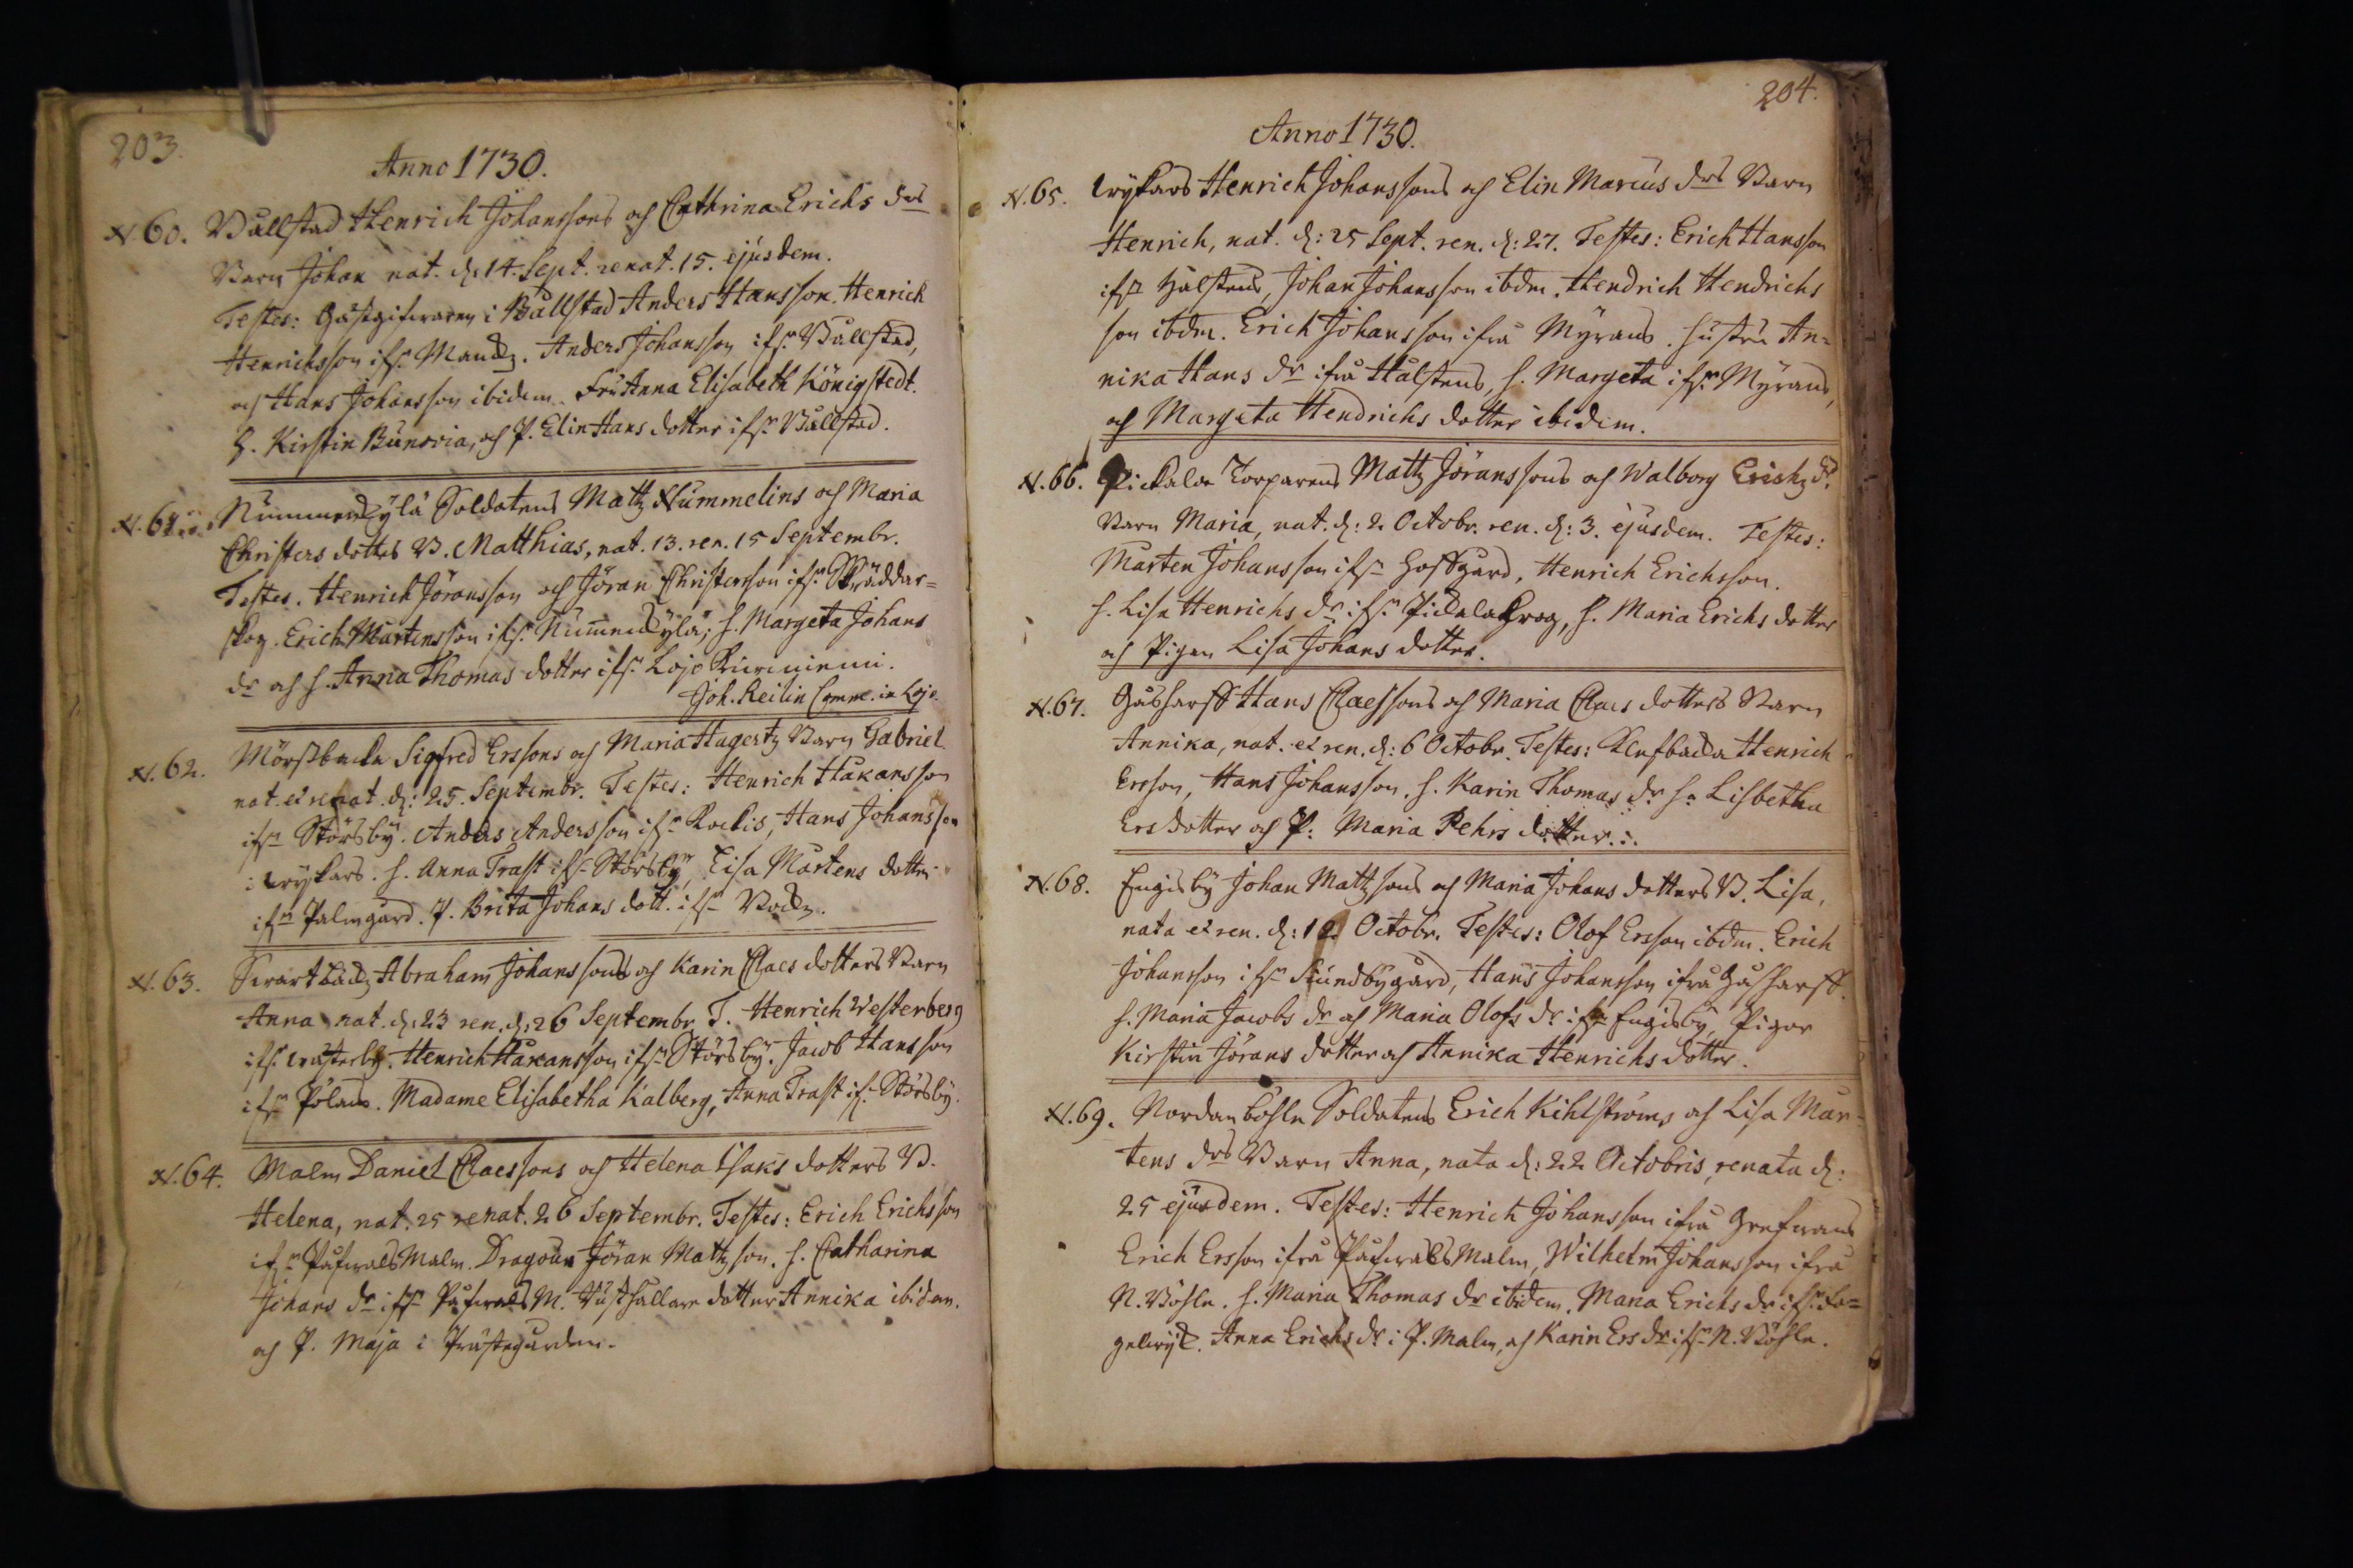 203.
Anno 1730.
N. 60. Bållstad Henrich Johanssons och Cathrina Erichs drs
Barn Johan nat. d. 14. Sept. renat. 15. ejusdem.
Testes: Gästgifwaren i Bållstad Anders Hansson. Henrich
Henrichsson ifr. Mancks. Anders Johansson ifr. Bållstad,
och Hans Johansson ibidem. Fru Anna Elisabeth Königstedt.
H. Kirstin Bunsvia, och P. Elin Hans dotter ifr. Bållstad.
N. 61. Nummenkylä Soldatens Mattz Nummelins och Maria
Christers dotters B. Matthias, nat. 13. ren. 15 Septembr.
Testes. Henrich Jöransson och Jöran Christersson ifr. Skräddar=
skog. Erich Mårtensson ifr. Nummenkylä; h. Margeta Johans
dr och h. Anna Thomas dotter ifr. Lojo Kirmiemi.
Joh. Keilin Comme. in Lojo.
N. 62. Mörsbacka Sigfred Erssons och Maria Hagertz Barn Gabriel
nat. et renat. d: 25. Septembr. Testes: Henrich Håkansson
ifrn Störsby. Anders Andersson ifrn Rockis, Hans Johansson
i Wrykars. h. Anna Trast ifr Störsby, Lisa Mårtens dotter
ifrn Palmgård. P. Brita Johans dott. ifrn Böckn.
N. 63. Swartbäck Abraham Johanssons och Karin Claes dotters Barn
Anna nat. d: 23 ren. d: 26 Septembr. T. Henrich Westerberg
ifr. Wästerby. Henrich Håkansson ifrn Störsby. Jacob Hansson
ifrn Pölans. Madame Elisabetha Kalberg, Anna Trast ifr. Störsby.
N. 64. Malm Daniel Claessons och Helena Isaks dotters B.
Helena, nat. 25 renat. 26 Septembr. Testes: Erich Erichsson
ifrn Påfwals Malm. Dragoun Jöran Mattzson. h. Catharina
Johans dr ifrn Påfwals M. Rusthållare dotter Annika ibidem.
och P. Maja i Prästegården.
204.
Anno 1730.
N. 65. Wrykars Henrich Johanssons och Elin Marcus drs Barn
Henrich, nat. d: 25 Sept. ren. d: 27. Testes: Erich Hansson
ifrn Halstens, Johan Johansson ibdm. Hendrich Hendrichs
son ibdm. Erich Johansson ifrå Myrans. Hustru An=
nika Hans dr ifrå Halstens, h. Margeta ifrn Myrans,
och Margeta Hendrichs dotter ibidem.
N. 66. Pickala Torparens Mattz Jöranssons och Walborg Erichz dr.
Barn Maria, nat. d: 2 Octobr. ren. d: 3. ejusdem. Testes:
Mårten Johansson ifrn Hofgård, Henrich Erichsson.
h. Lisa Henrichs dr ifr. Pickala Krog, h. Maria Erichs dotter
och Pigan Lisa Johans dotter.
N. 67. Hans Claessons och Maria Claes dotters Barn
Annika, nat. et ren. d: 6 Octobr. Testes: Henrich
Ersson, Hans Johansson, h. Karin Thomas dr ha Lisbetha
Ersdotter och P: Maria Pehrs dotter.
N. 68. Engisby Johan Mattzsons och Maria Johans dotters B. Lisa,
nata et ren. d: 12 Octobr. Testes: Olof Ersson ibdm. Erich
Johansson ifrn Siundbygård, Hans Johansson ifrå
h. Maria Jacobs dr och Maria Olofs dr ifrn Engisby, Pigor
Kirstin Jörans dotter och Annika Henrichs dotter.
N. 69. Nordanböhle Soldatens Erich Kihlströms och Lisa Mår=
tens drs Barn Anna, nata d: 22 Octobris, renata d:
25 ejusdem. Testes: Henrich Johansson ifrå Grefwans
Erich Ersson ifrå Påfwals Malm, Wilhelm Johansson ifrå
N. Böhle. h. Maria Thomas dr ibidem. Maria Erichs dr ifr. Fo=
gelwyk. Anna Erichs dr i P. Malm, och Karin Ers dr ifrn N. Böhle.